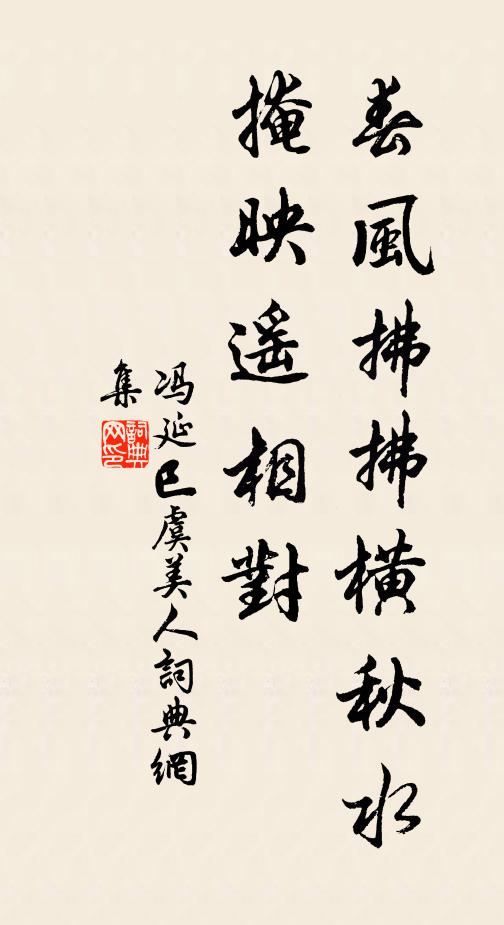 春風拂拂橫秋水
掩映遥相對
冯延巳虞美人詞典網
集
詞典網印